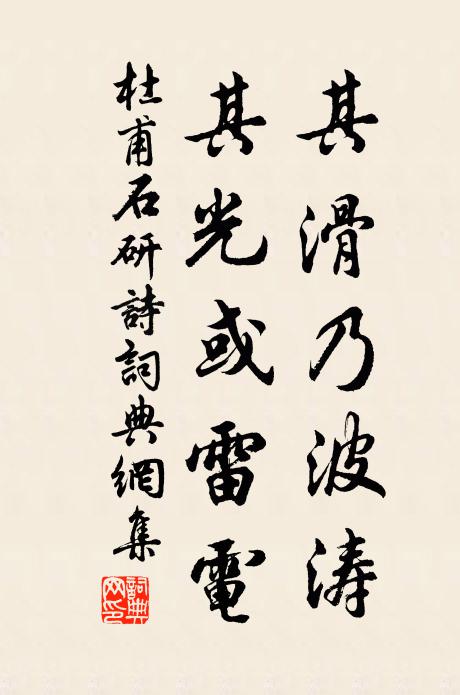 其滑乃波涛
其光或雷電
杜甫石研詩詞典網集
詞典网印